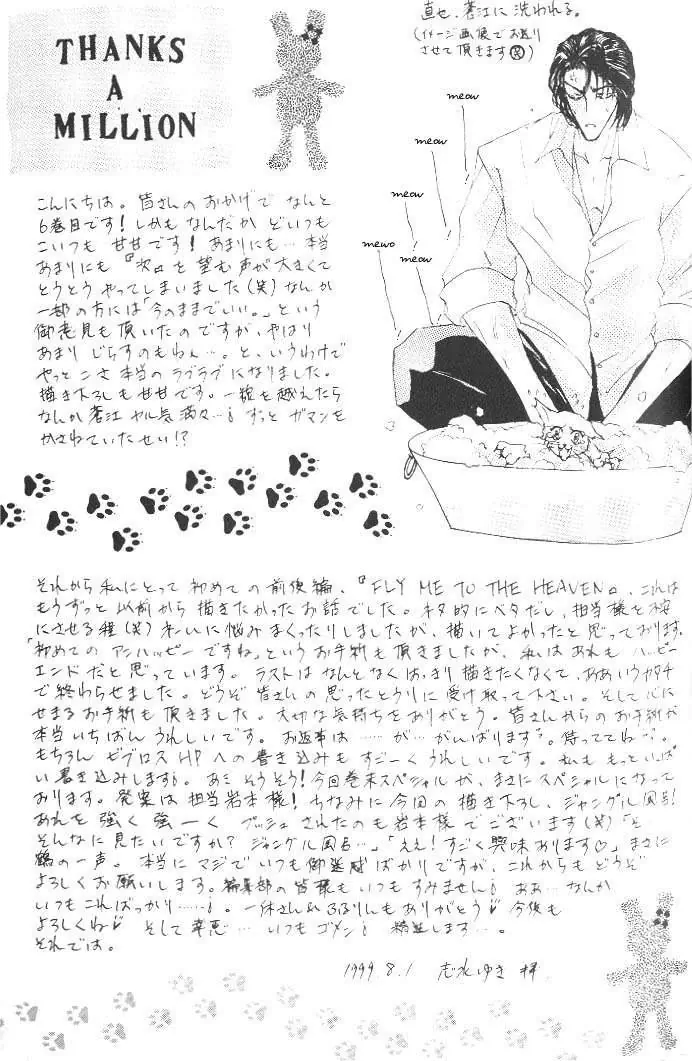 THANKS
A
MILLION
直也、蒼江に洗われる。
(イメージ画像でお送り
させて頂きます㊥)
meow
meow
meow
mewo
meow
こんにちは。皆さんのおかげで なんと
6巻目です! しかも なんだか どいつも
こいつも 甘甘です! あまりにも… 本当
あまりにも『次』を望む声が大きくて
とうとう やってしまいました(笑) なんか
一部の方には「今のままでいい。」という
御意見も頂いたのですが、やはり
あまり じらすのもねぇ…。と、いうわけで
やっとこさ本当のラブラブになりました。
描き下ろしも甘甘です。一線を越えたら
なんか蒼江 ヤル気満々…! ずっと ガマンを
かさねていたせい!?
それから 私にとって 初めての前後編、『FLY ME TO THE HEAVEN』、これは
もうずっと以前から描きたかったお話でした。ネタ的にベタだし、担当様を不安
にさせる程(笑) 大いに悩みまくったりしましたが、描いてよかったと思っております。
「初めての アンハッピーですね」というお手紙も頂きましたが、私はあれも ハッピー
エンドだと思っています。ラストは なんとなくはっきり描きたくなくて、ああいうカタチ
で終わらせました。どうぞ皆さんの思ったとうりに受け取って下さい。そして心に
せまるお手紙も頂きました。大切な気持ちをありがとう。皆さんからのお手紙が
本当いちばん うれしいです。お返事は……が…がんばります。待っててね…。
もちろん ビブロスHPへの書き込みも すごーく うれしいです。私も もっといっぱ
い書き込みします。あ、そうそう! 今回巻末スペシャルが、まさにスペシャルになって
おります。発案は担当岩本様! ちなみに今回の描き下ろし、ジャングル風呂!
あれを強く 強ーく プッシュされたのも岩本様でございます(笑)「そ
そんなに見たいですか? ジャングル風呂…」「ええ! すごく興味あります♡」まさに
鶴の一声。本当にマジでいつも御迷惑ばかりですが、これからもどうぞ
よろしくお願いします。編集部の皆様もいつも すみません! ああ…なんか
いつもこればっかり……!。一休さん&ふるりんもありがとう♡ 今後も
よろしくね♡ そして幸恵… いつも ゴメン! 精進します…。
それでは。
1999.8.1 志水ゆき 拝